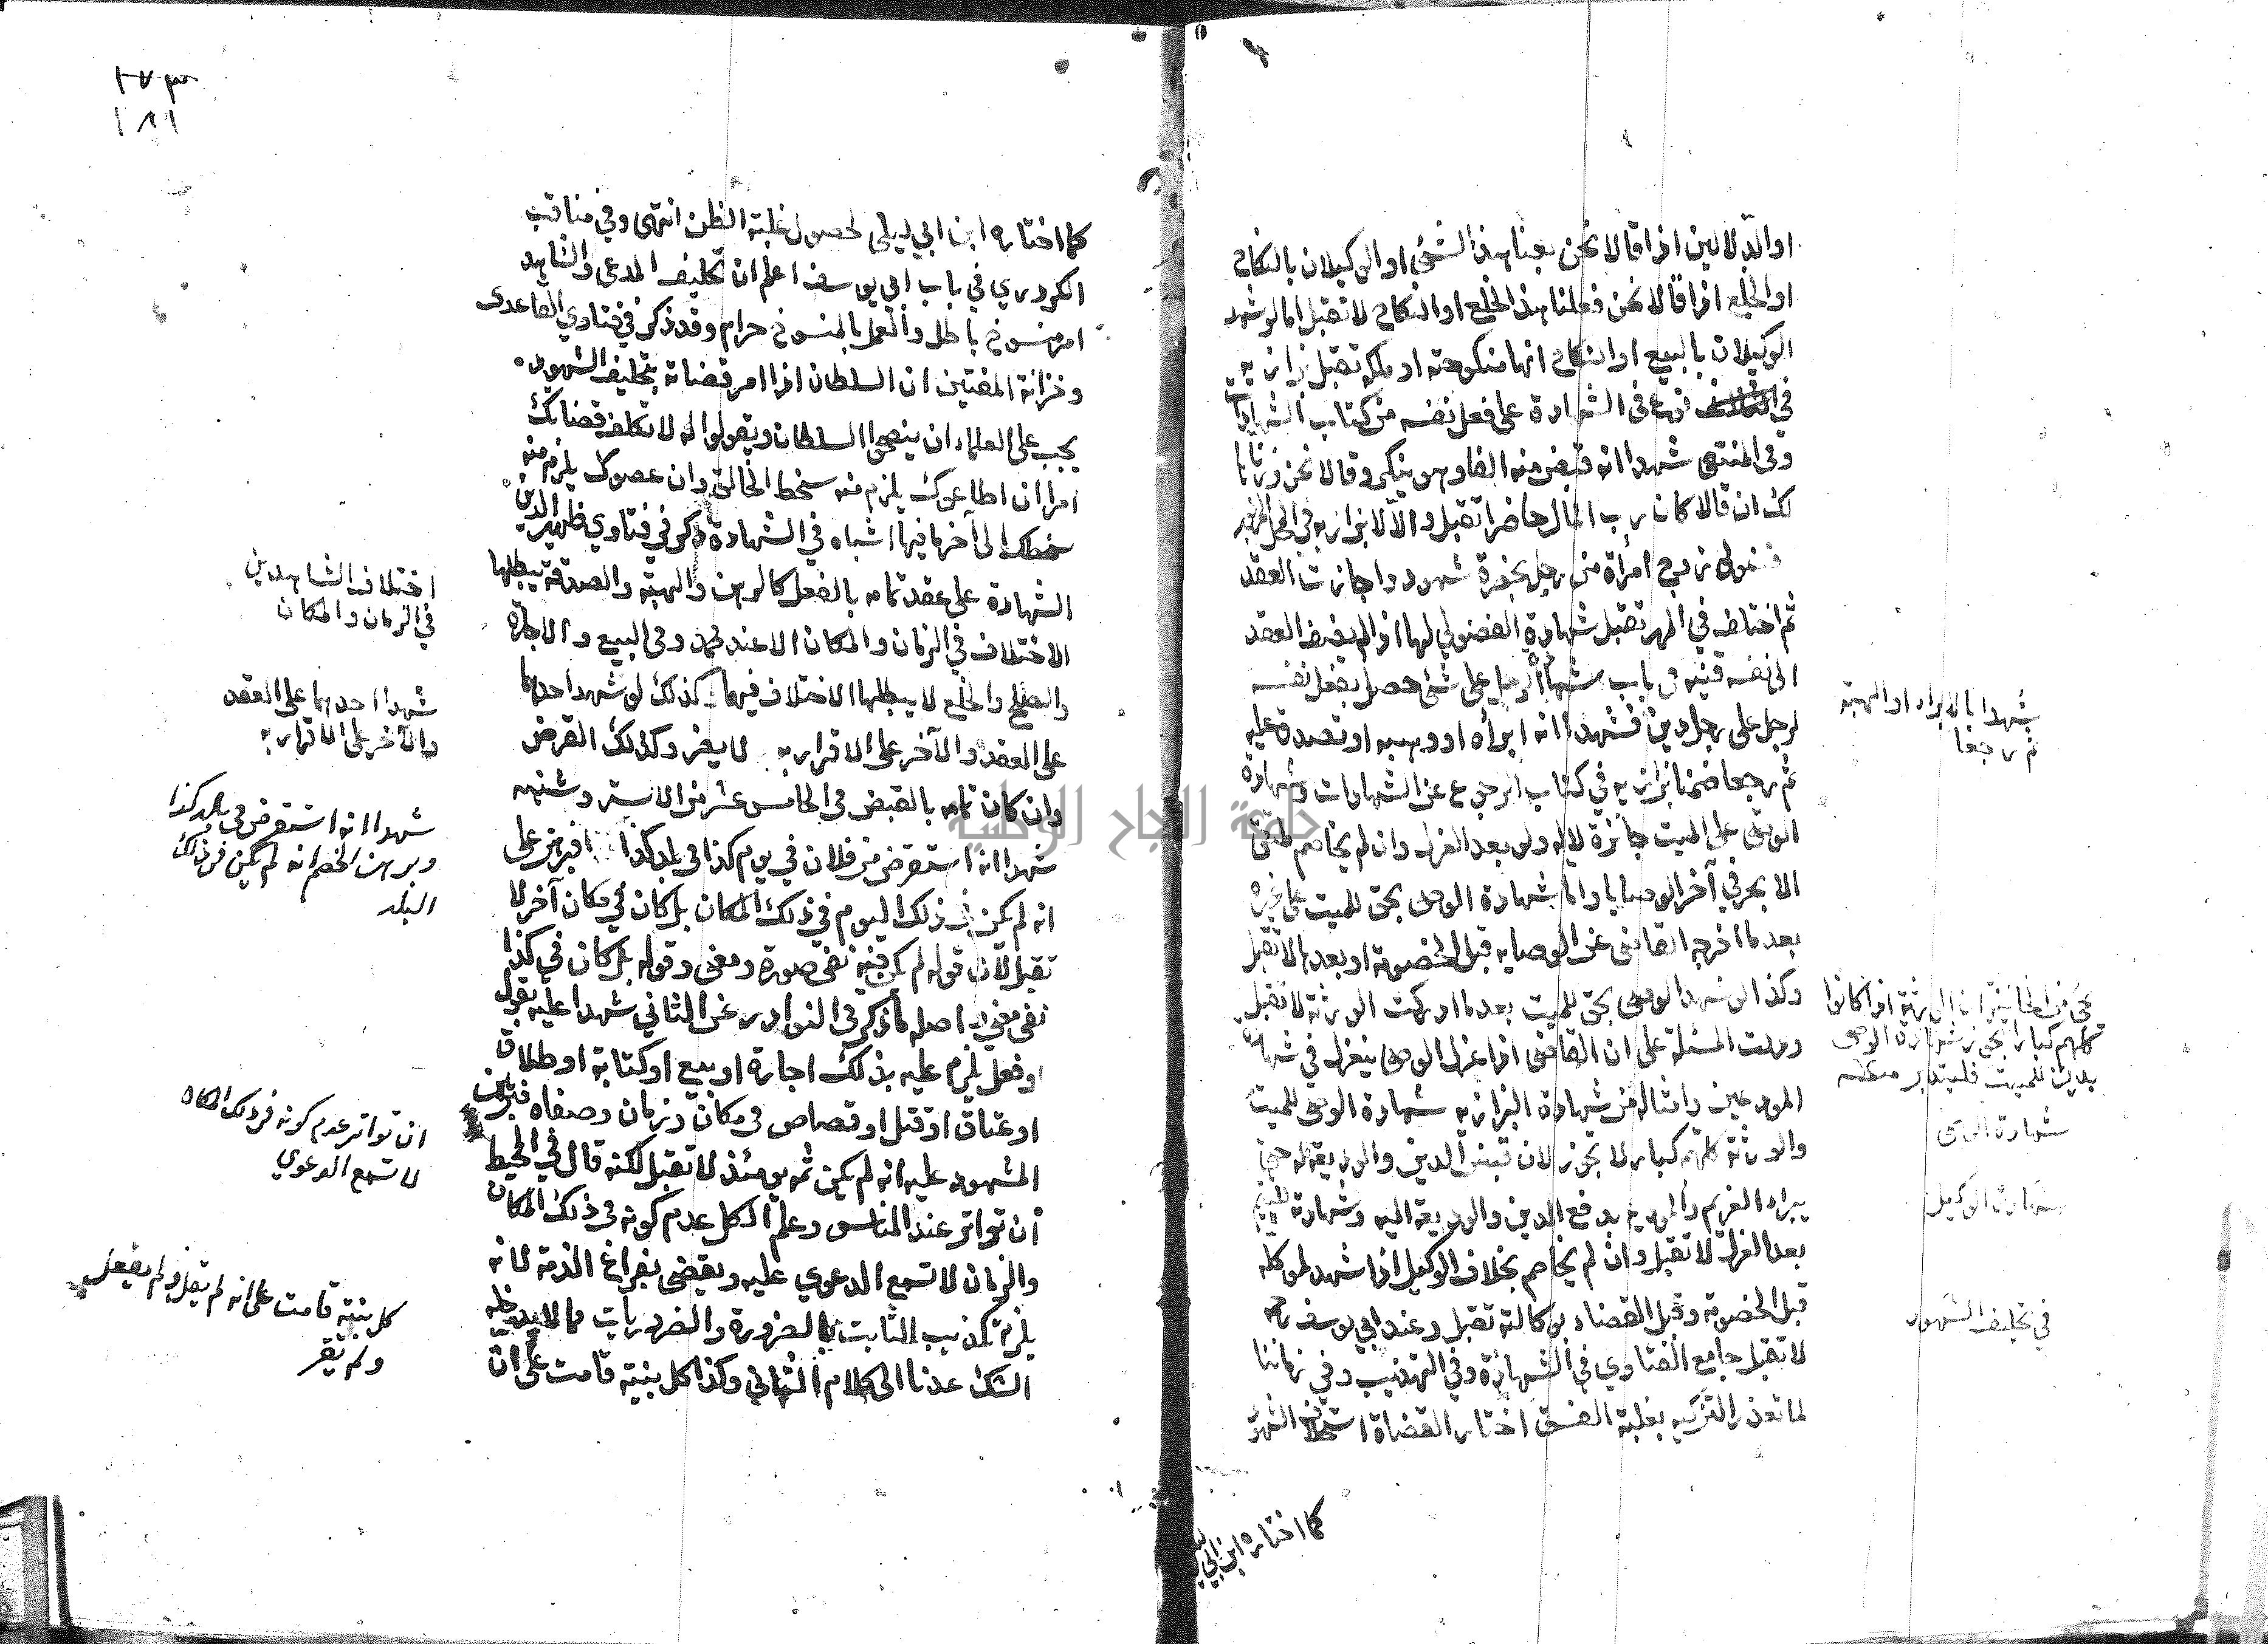 او الدلالين اذا قالا نحن بعنا هذا الشئ او الوكيلان بالنكاح
او الخلع اذا قالا نحن فعلنا هذا الخلع او النكاح لا تقبل اما لو شهد
الوكيلان بالبيع او النكاح انها منكوحته او ملكه تقبل بزازيه
في نوع في الشهادة على فعل نفسه من كتاب الشهادات
وفى المنتقى شهدا انه قبض منه الفا وهو ينكر وقالا نحن وزنا
لك ان قالا كان رب المال حاضرا تقبل والا لا بزازيه في المحل المزبور
فضولى زوج امراة من رجل بحضرة شهود واجازت العقد
ثم اختلفا في المهر تقبل شهادة الفضولي لها اذا لم يضف العقد
الى نفسه قنيه فى باب شهادة الرجل على شئ حصل بفعل نفسه
لرجل على رجل دين فشهدا انه ابرأه او وهبه او تصدق عليه
ثم رجعا ضمنا بزازيه في كتاب الرجوع عن الشهادات وشهادة
الوصى على الميت جائزة لا له ولو بعد العزل وان لم يخاصم ملتقى
الابحر في آخر الوصايا واما شهادة الوصى بحق للميت على غيره
بعد ما اخرجه القاضى عن الوصايه قبل الخصومة او بعدها لا تقبل
وكذا لو شهد الوصى بحق للميت بعد ما ادركت الورثة لا تقبل
ودلت المسئلة على ان القاضى اذا عزل الوصى ينعزل في شهادة
المودعين وامثاله من شهادة البزازيه شهادة الوصى للميت
والورثة كلهم كبار لا يجوز لان قبض الدين والوديعة له حتى
يبراء الغريم والمودع بدفع الدين والوديعة اليه وشهادة لليتيم
بعد العزل لا تقبل وان لم يخاصم بخلاف الوكيل اذا شهد لموكله
قبل الخصومة وقبل القضاء بوكالته تقبل وعند ابي يوسف رحمه
لا تقبل جامع الفتاوي في الشهادة وفي التهذيب وفي زماننا
لما تعذر التزكيه بغلبة الفسق اختار القضاة استحلاف الشهود
كما اختاره ابن ابي ليلى
يشهدا بالابراء او الهبة
ثم رجعا
بحق من الخانية ان الورثة اذا كانوا
كلهم كبارا يجوز شهادة الوصى
بدين للميت فليتدبر
شهادة الوصى
شهادة الوكيل
في تحليف الشهود
٢٧٣
١٨١
كما اختاره ابن ابي ليلى لحصول غلبة الظن انتهى وفي مناقب
الكردري في باب ابي يوسف اعلم ان تحليف المدعى والشاهد
امر منسوخ باطل والعمل بالمنسوخ حرام وقد ذكر في فتاوي القاعدى
وخزانة المفتين ان السلطان اذا امر قضاته بتحليف الشهود
يجب على العلماء ان ينصحوا السلطان ويقولوا له لا تكلف قضاتك
امرا ان اطاعوك يلزم منه سخط الخالق وان عصوك يلزم منه
سخطك الى آخر ما فيها اشباه في الشهادة ذكر في فتاوي ظهير الدين
الشهادة على عقد تمامه بالفعل كالرهن والهبة والصدقة يبطلها
الاختلاف في الزمان والمكان الا عند محمد وفى البيع والاجارة
والصلح والخلع لا يبطلها الاختلاف فيهما كذلك لو شهد احدهما
على العقد والآخر على الاقرار به لا يضر وكذلك القرض
وان كان تمامه بالقبض فى الخامس عشر من الاستروشنيه
شهدا انه استقرض من فلان في يوم كذا فى بلد كذا فبرهن على
انه لم يكن فى ذلك اليوم في ذلك المكان بل كان في مكان آخر لا
تقبل لان قوله لم يكن فيه نفى صورة ومعنى وقوله بل كان في كذا
نفى معنى اصله ما ذكر فى النوادر عن الثاني شهدا عليه بقول
او فعل يلزم عليه بذلك اجارة او بيع او كتابة او طلاق
او عتاق او قتل او قصاص فى مكان وزمان وصفاه فبرهن
المشهود عليه انه لم يكن ثمه يومئذ لا تقبل لكنه قال في المحيط
ان تواتر عند الناس وعلم الكل عدم كونه فى ذلك المكان
والزمان لا تسمع الدعوي عليه ويقضى بفراغ الذمة لانه
يلزم تكذيب الثابت بالضرورة والضروريات مما لا يدخله
الشك عدنا الى كلام الثاني وكذا كل بينة قامت على ان
اختلاف الشاهدين
في الزمان والمكان
شهدا احدهما على العقد
والآخر على الاقرار به
شهدا انه استقرض فى بلد كذا
وبرهن الخصم انه لم يكن فى ذلك
البلد
ان تواتر عدم كونه فى ذلك المكان
لا تسمع الدعوي
كل بينة قامت على انه لم يقل ولم يفعل
ولم يقر